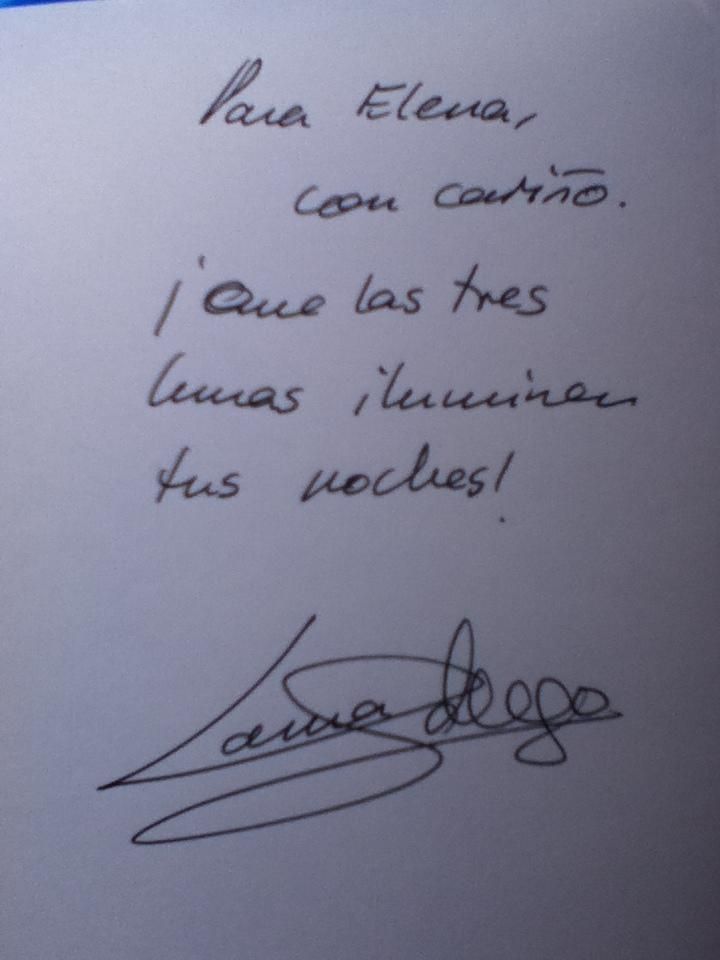 Para Elena,
con cariño.
¡Que las tres
lunas iluminen
tus noches!